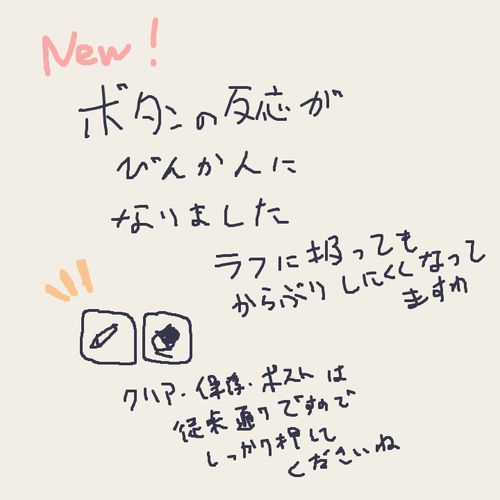 New!
ボタンの反応が
びんかんに
なりました
ラフに扱っても
からぶりしにくくなって
ますわ
クリア・保存・ポストは
従来通りですので
しっかり押して
くださいね